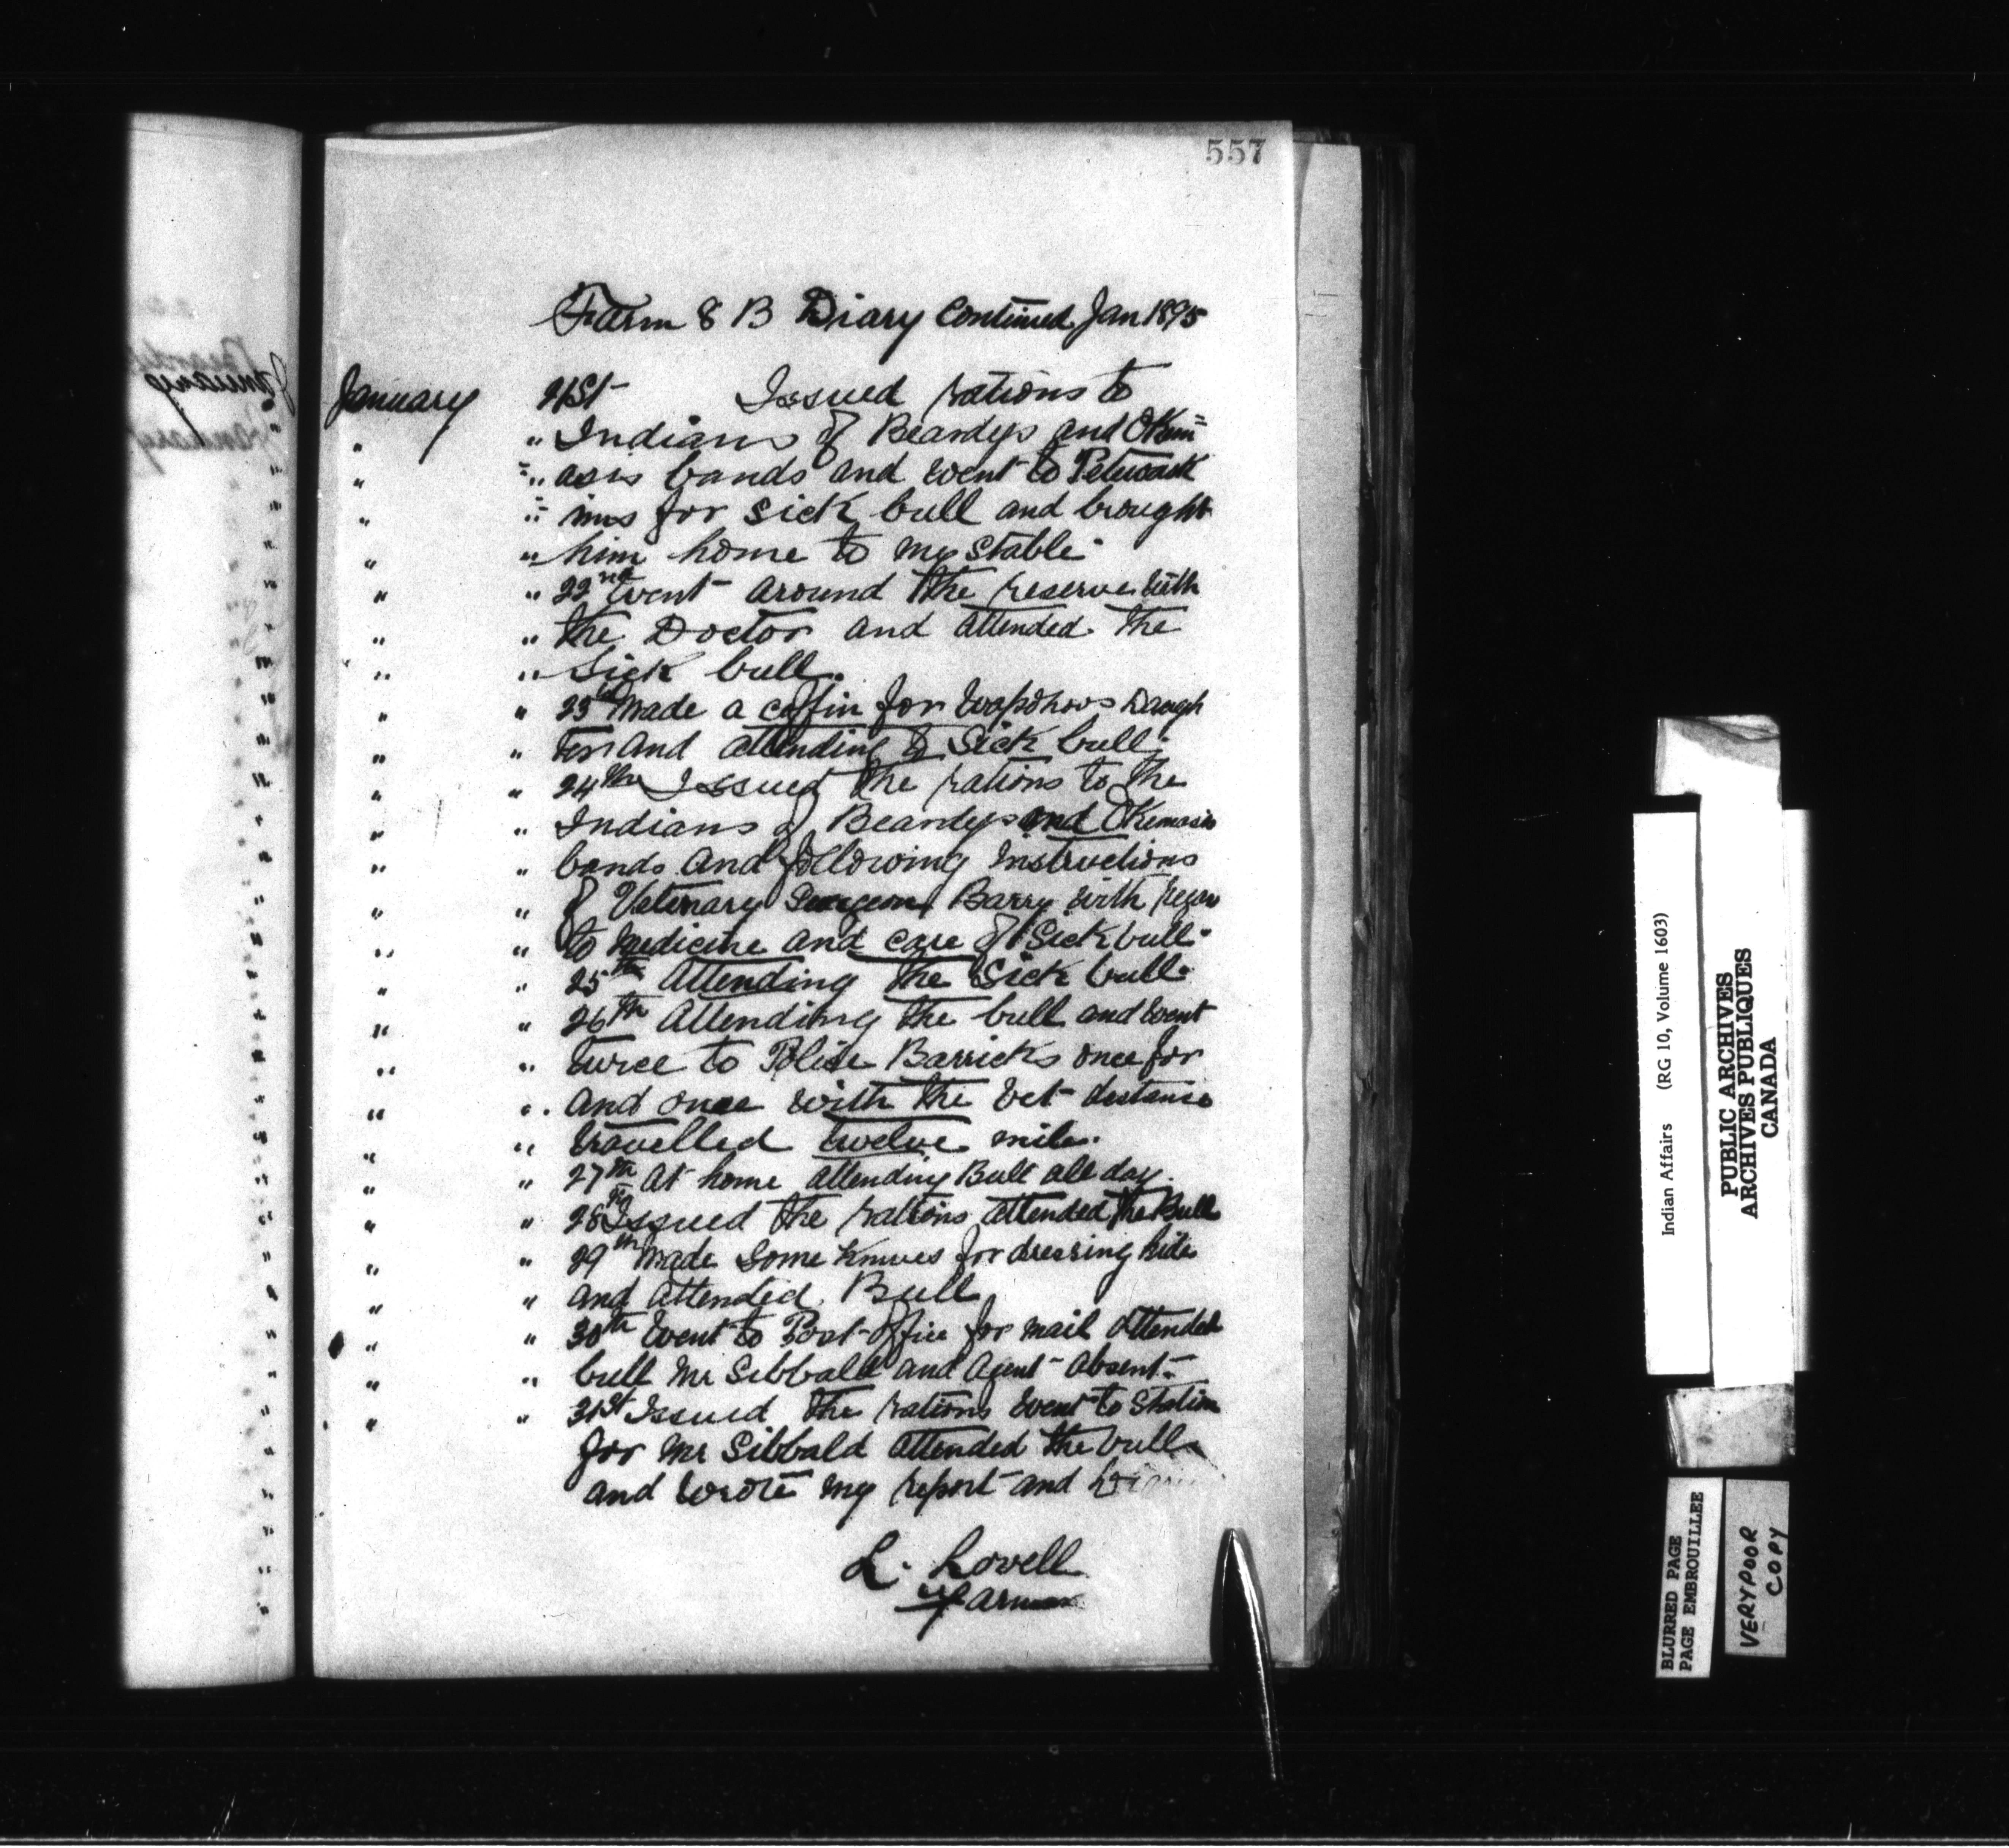 557
Farm 8 B Diary Continued Jan 1895
January 21st Issued rations to
" " Indians of Beardys and Okem=
" =" asis bands and went to Petewack
" =" ins for sick bull and brought
" " him home to my stable
" " 22nd Went around the reserve with
" " the Doctor and attended the
" " Sick bull.
" " 23rd Made a coffin for Daugh
" " ter and attending to Sick bull.
" " 24th Issued the rations to the
" " Indians of Beardys and Okemasis
" " bands and following Instructions
" " of Vetenary Surgeon Barry with regar
" " to medicine and care of Sick bull
" " 25th Attending the Sick bull
" " 26th Attending the bull and went
" " twice to Police Barricks once for
" " and once with the Vet distance
" " travelled twelve mile.
" " 27th At home attending Bull all day.
" " 28th Issued the rations attended the Bull
" " 29th Made Some Knives for dressing hide
" " and attended Bull
" " 30th Went to Post-Office for mail attended
" " bull Mr Sibbald and Agent absent.
" " 31st Issued the rations went to Station
for Mr Sibbald attended the bull
and wrote my report and
L. Lovell
Indian Affairs (RG 10, Volume 1603)
PUBLIC ARCHIVES
ARCHIVES PUBLIQUES
CANADA
BLURRED PAGE
PAGE EMBROUILLEE
VERY POOR
COPY